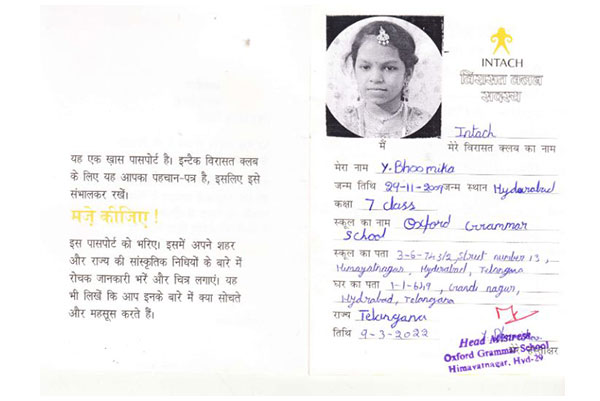 यह एक ख़ास पासपोर्ट है। इन्टैक विरासत क्लब
के लिए यह आपका पहचान-पत्र है, इसलिए इसे
संभालकर रखें।
मज़े कीजिए !
इस पासपोर्ट को भरिए। इसमें अपने शहर
और राज्य की सांस्कृतिक निधियों के बारे में
रोचक जानकारी भरें और चित्र लगाएं। यह
भी लिखें कि आप इनके बारे में क्या सोचते
और महसूस करते हैं।
INTACH
विरासत क्लब
सदस्य
Intach
मैं मेरे विरासत क्लब का नाम
मेरा नाम Y. Bhoomika
जन्म तिथि 24-11-2009 जन्म स्थान Hyderabad
कक्षा 7 class
स्कूल का नाम Oxford Grammar
School
स्कूल का पता 3-6-743/2, Street number 13,
Himayatnagar, Hyderabad, Telangana
घर का पता 1-1-649, Gandhi nagar,
Hydrabad, Telangana
राज्य Telangana
तिथि 9-3-2022
हस्ताक्षर
Head Mistress
Oxford Grammar School
Himayatnagar, Hyd-29